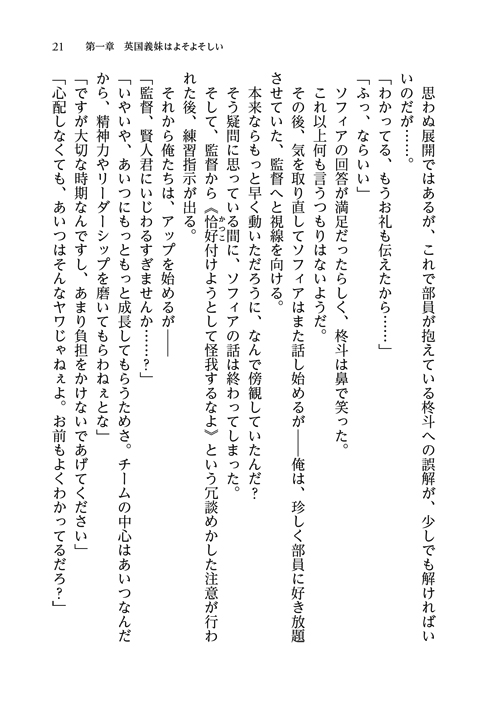 21　第一章　英国義妹はよそよそしい
　思わぬ展開ではあるが、これで部員が抱えている柊斗への誤解が、少しでも解ければい
いのだが……。
「わかってる、もうお礼も伝えたから……」
「ふっ、ならいい」
　ソフィアの回答が満足だったらしく、柊斗は鼻で笑った。
　これ以上何も言うつもりはないようだ。
　その後、気を取り直してソフィアはまた話し始めるが――俺は、珍しく部員に好き放題
させていた、監督へと視線を向ける。
　本来ならもっと早く動いただろうに、なんで傍観していたんだ？
　そう疑問に思っている間に、ソフィアの話は終わってしまった。
　そして、監督から《恰好付けようとして怪我するなよ》という冗談めかした注意が行わ
れた後、練習指示が出る。
　それから俺たちは、アップを始めるが――
「監督、賢人君にいじわるすぎませんか……？」
「いやいや、あいつにもっともっと成長してもらうためさ。チームの中心はあいつなんだ
から、精神力やリーダーシップを磨いてもらわねぇとな」
「ですが大切な時期なんですし、あまり負担をかけないであげてください」
「心配しなくても、あいつはそんなヤワじゃねぇよ。お前もよくわかってるだろ？」